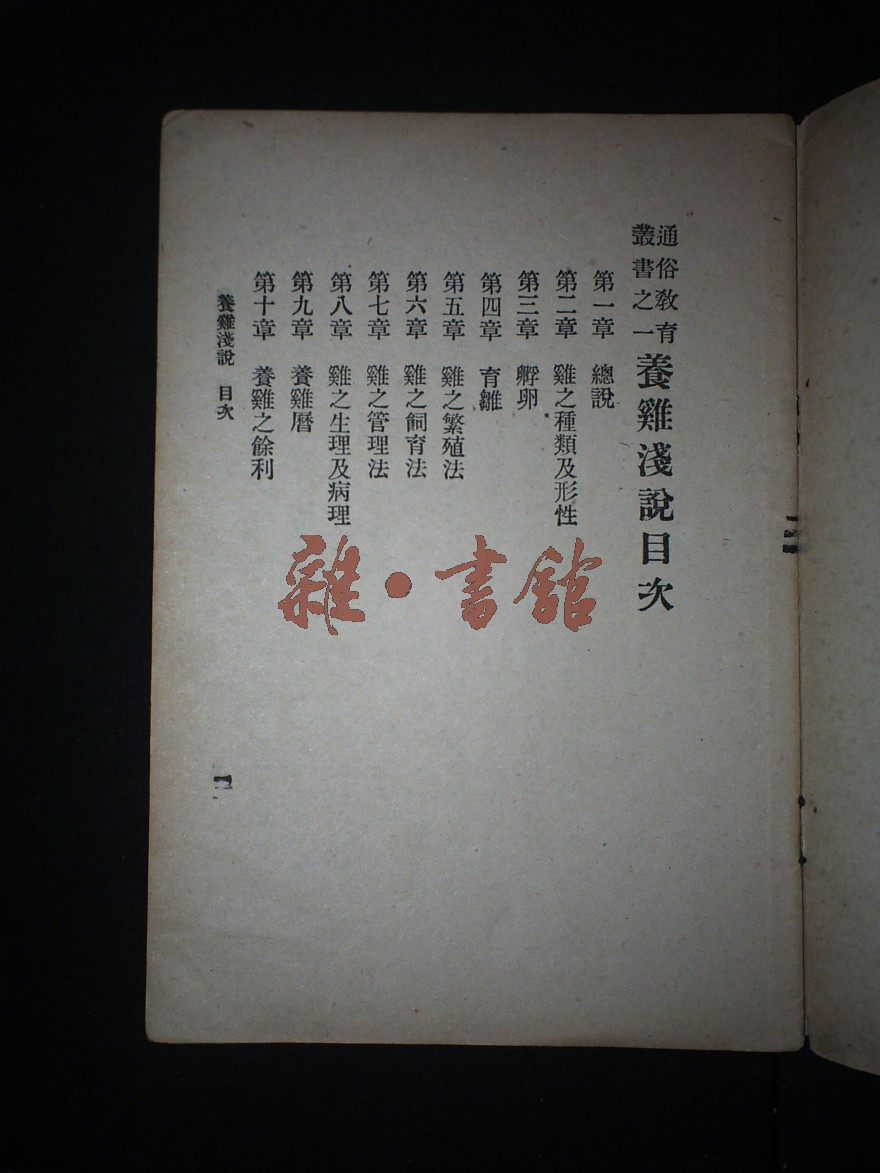 通俗教育
叢書之一
養雞淺說目次
第一章 總說
第二章 雞之種類及形性
第三章 孵卵
第四章 育雛
第五章 雞之繁殖法
第六章 雞之飼育法
第七章 雞之管理法
第八章 雞之生理及病理
第九章 養雞曆
第十章 養雞之餘利
養雞淺說 目次
一
雜·書館